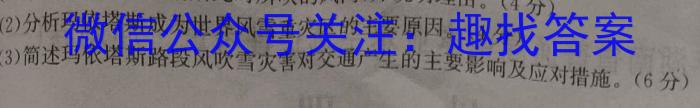 (4分)
(2)分析玛依塔斯成为世界风雪重灾区的主要原因。
微信公众号关注：趣找答案
(3)简述玛依塔斯路段风吹雪灾害对交通产生的主要影响及应对措施。(6分)